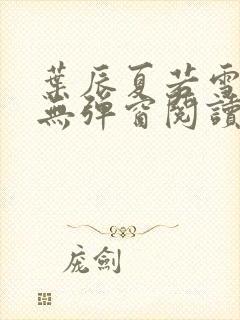 葉辰夏若雪
無彈窗閱讀
庞劍